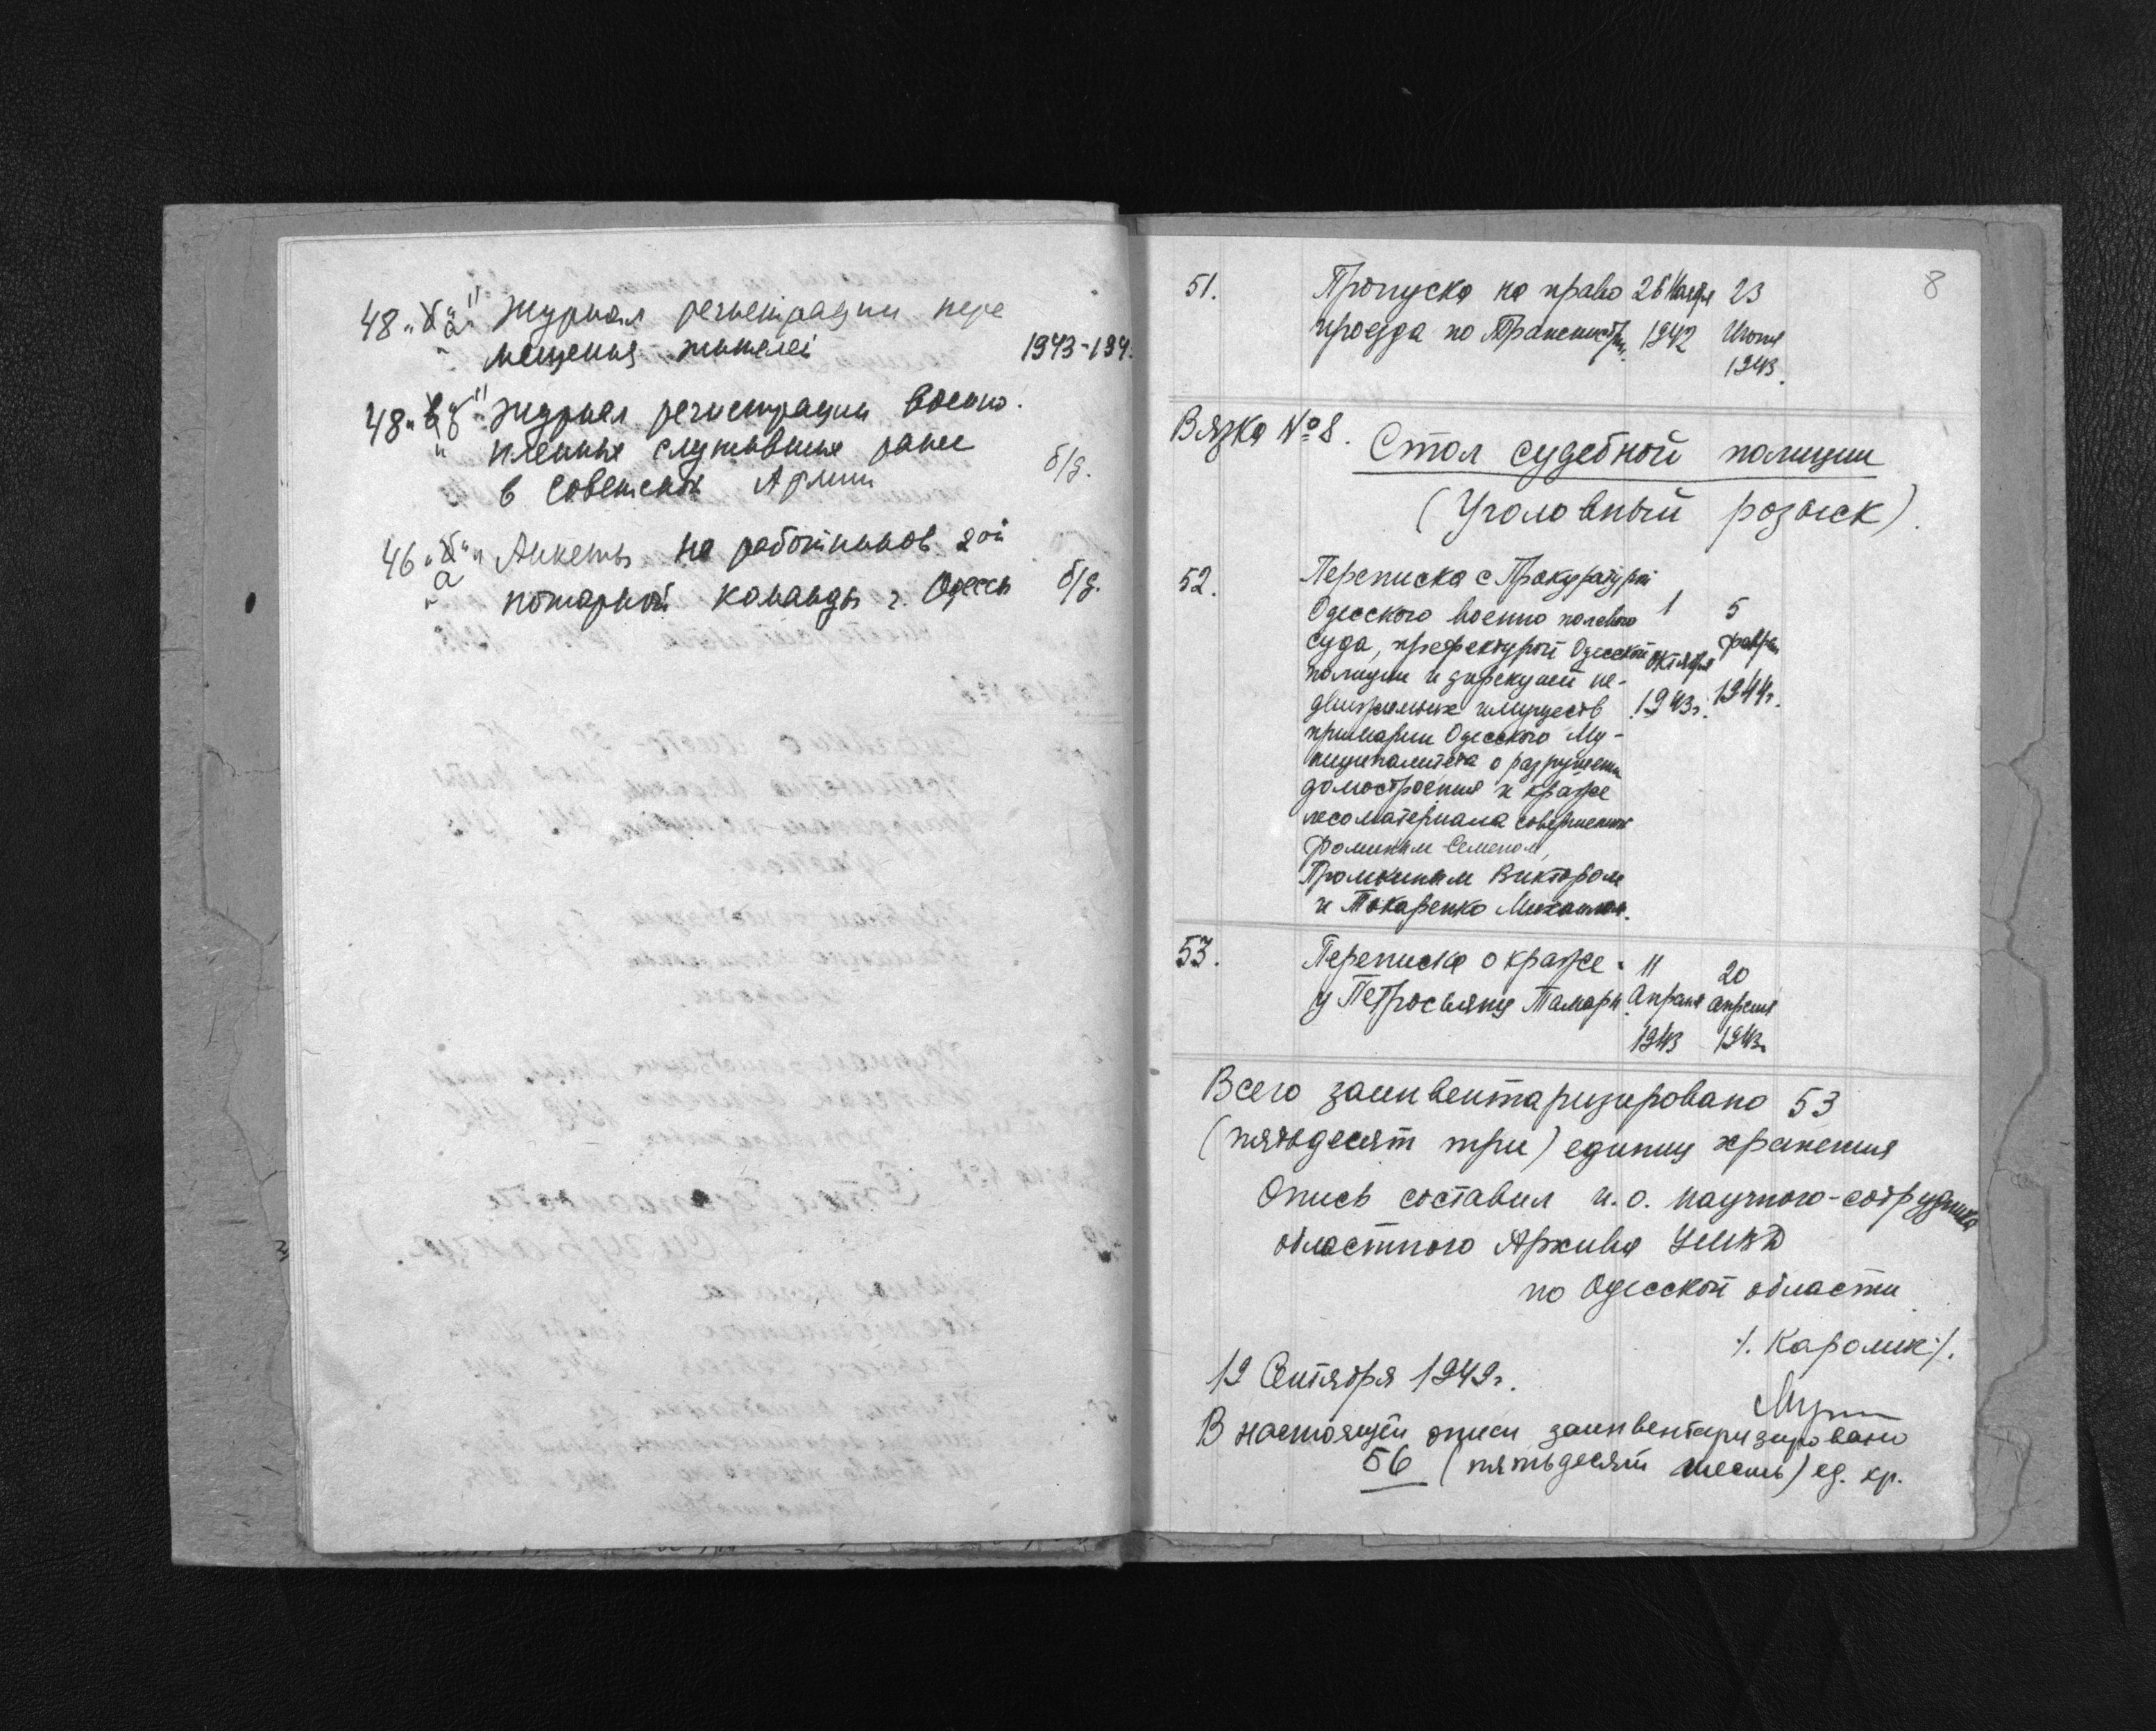 48 „б" „а" Журнал регистрации пере
мещения жителей 1943-194
48 „в" „б" Журнал регистрации военно-
пленных служивших ранее
в Советской Армии б/д.
46 „б" „а" Анкеты на работников 2ой
пожарной команды г. Одессы б/д.
8
51. Пропуска на право 26 Ноября 23
проезда по Транснистрии. 1942 Июня
1943.
Вязка №8.
Стол судебной полиции
(Уголовный розыск).
52. Переписка с Прокуратурой
Одесского военно полевого 1 5
суда, префектурой Одесской Октября февраля
полиции и дирекцией не-
движимых имуществ 1943г. 1944г.
примарии Одесского Му-
ниципалитета о разрушении
домостроения и краже
лесоматериала совершенных
Фоминым Семеном,
Виктором
и Токаренко Михаилом.
53. Переписка о краже 11 20
у Петросьянц Тамары. Апреля апреля
1943 1943г.
Всего заинвентаризировано 53
(пятьдесят три) единиц хранения
Опись составил и.о. научного-сотрудника
областного Архива УМВД
по Одесской области
/. Каролик /.
19 Сентября 1949г.
В настоящей описи заинвентаризировано
56 (пятьдесят шесть) ед. хр.